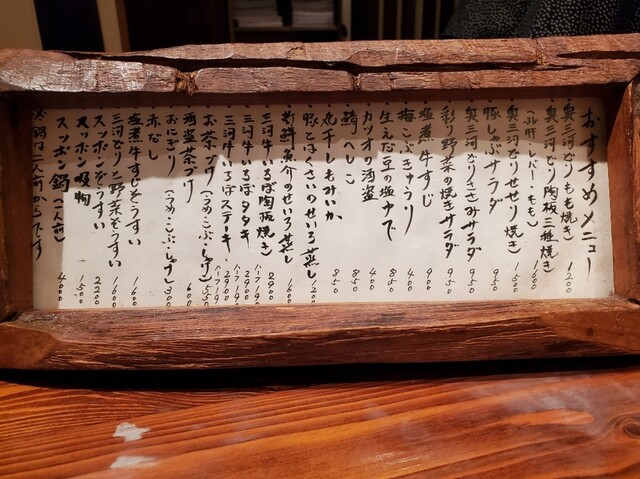 おすすめメニュー
奥三河どりもも焼き 1200
奥三河どり陶板三種焼き
(砂肝・レバー・もも) 1600
奥三河どりせせり焼き 1500
豚しゃぶサラダ 950
奥三河どりささみサラダ 950
彩り野菜の焼きサラダ 950
塩煮牛すじ 900
梅こぶきゅうり 400
生えだ豆の塩ゆで 850
カツオの酒盗 400
鯖へしこ 850
丸干しもみいか 850
豚とはくさいのせいろ蒸し 1200
旬鮮魚介のせいろ蒸し 1600
三河牛いちぼ陶板焼き 2900
三河牛いちぼタタキ 2900
三河牛いちぼステーキ 2900
お茶づけ(うめ・こぶ・しゃけ) 550
酒盗茶づけ 600
おにぎり(うめ・こぶ・しゃけ) 300
赤だし
塩煮牛すじぞうすい 1600
三河どりと野菜ぞうすい 1600
スッポンぞうすい 2200
スッポン吸物 1500
スッポン鍋(二人前) 4000
鍋は二人前からです